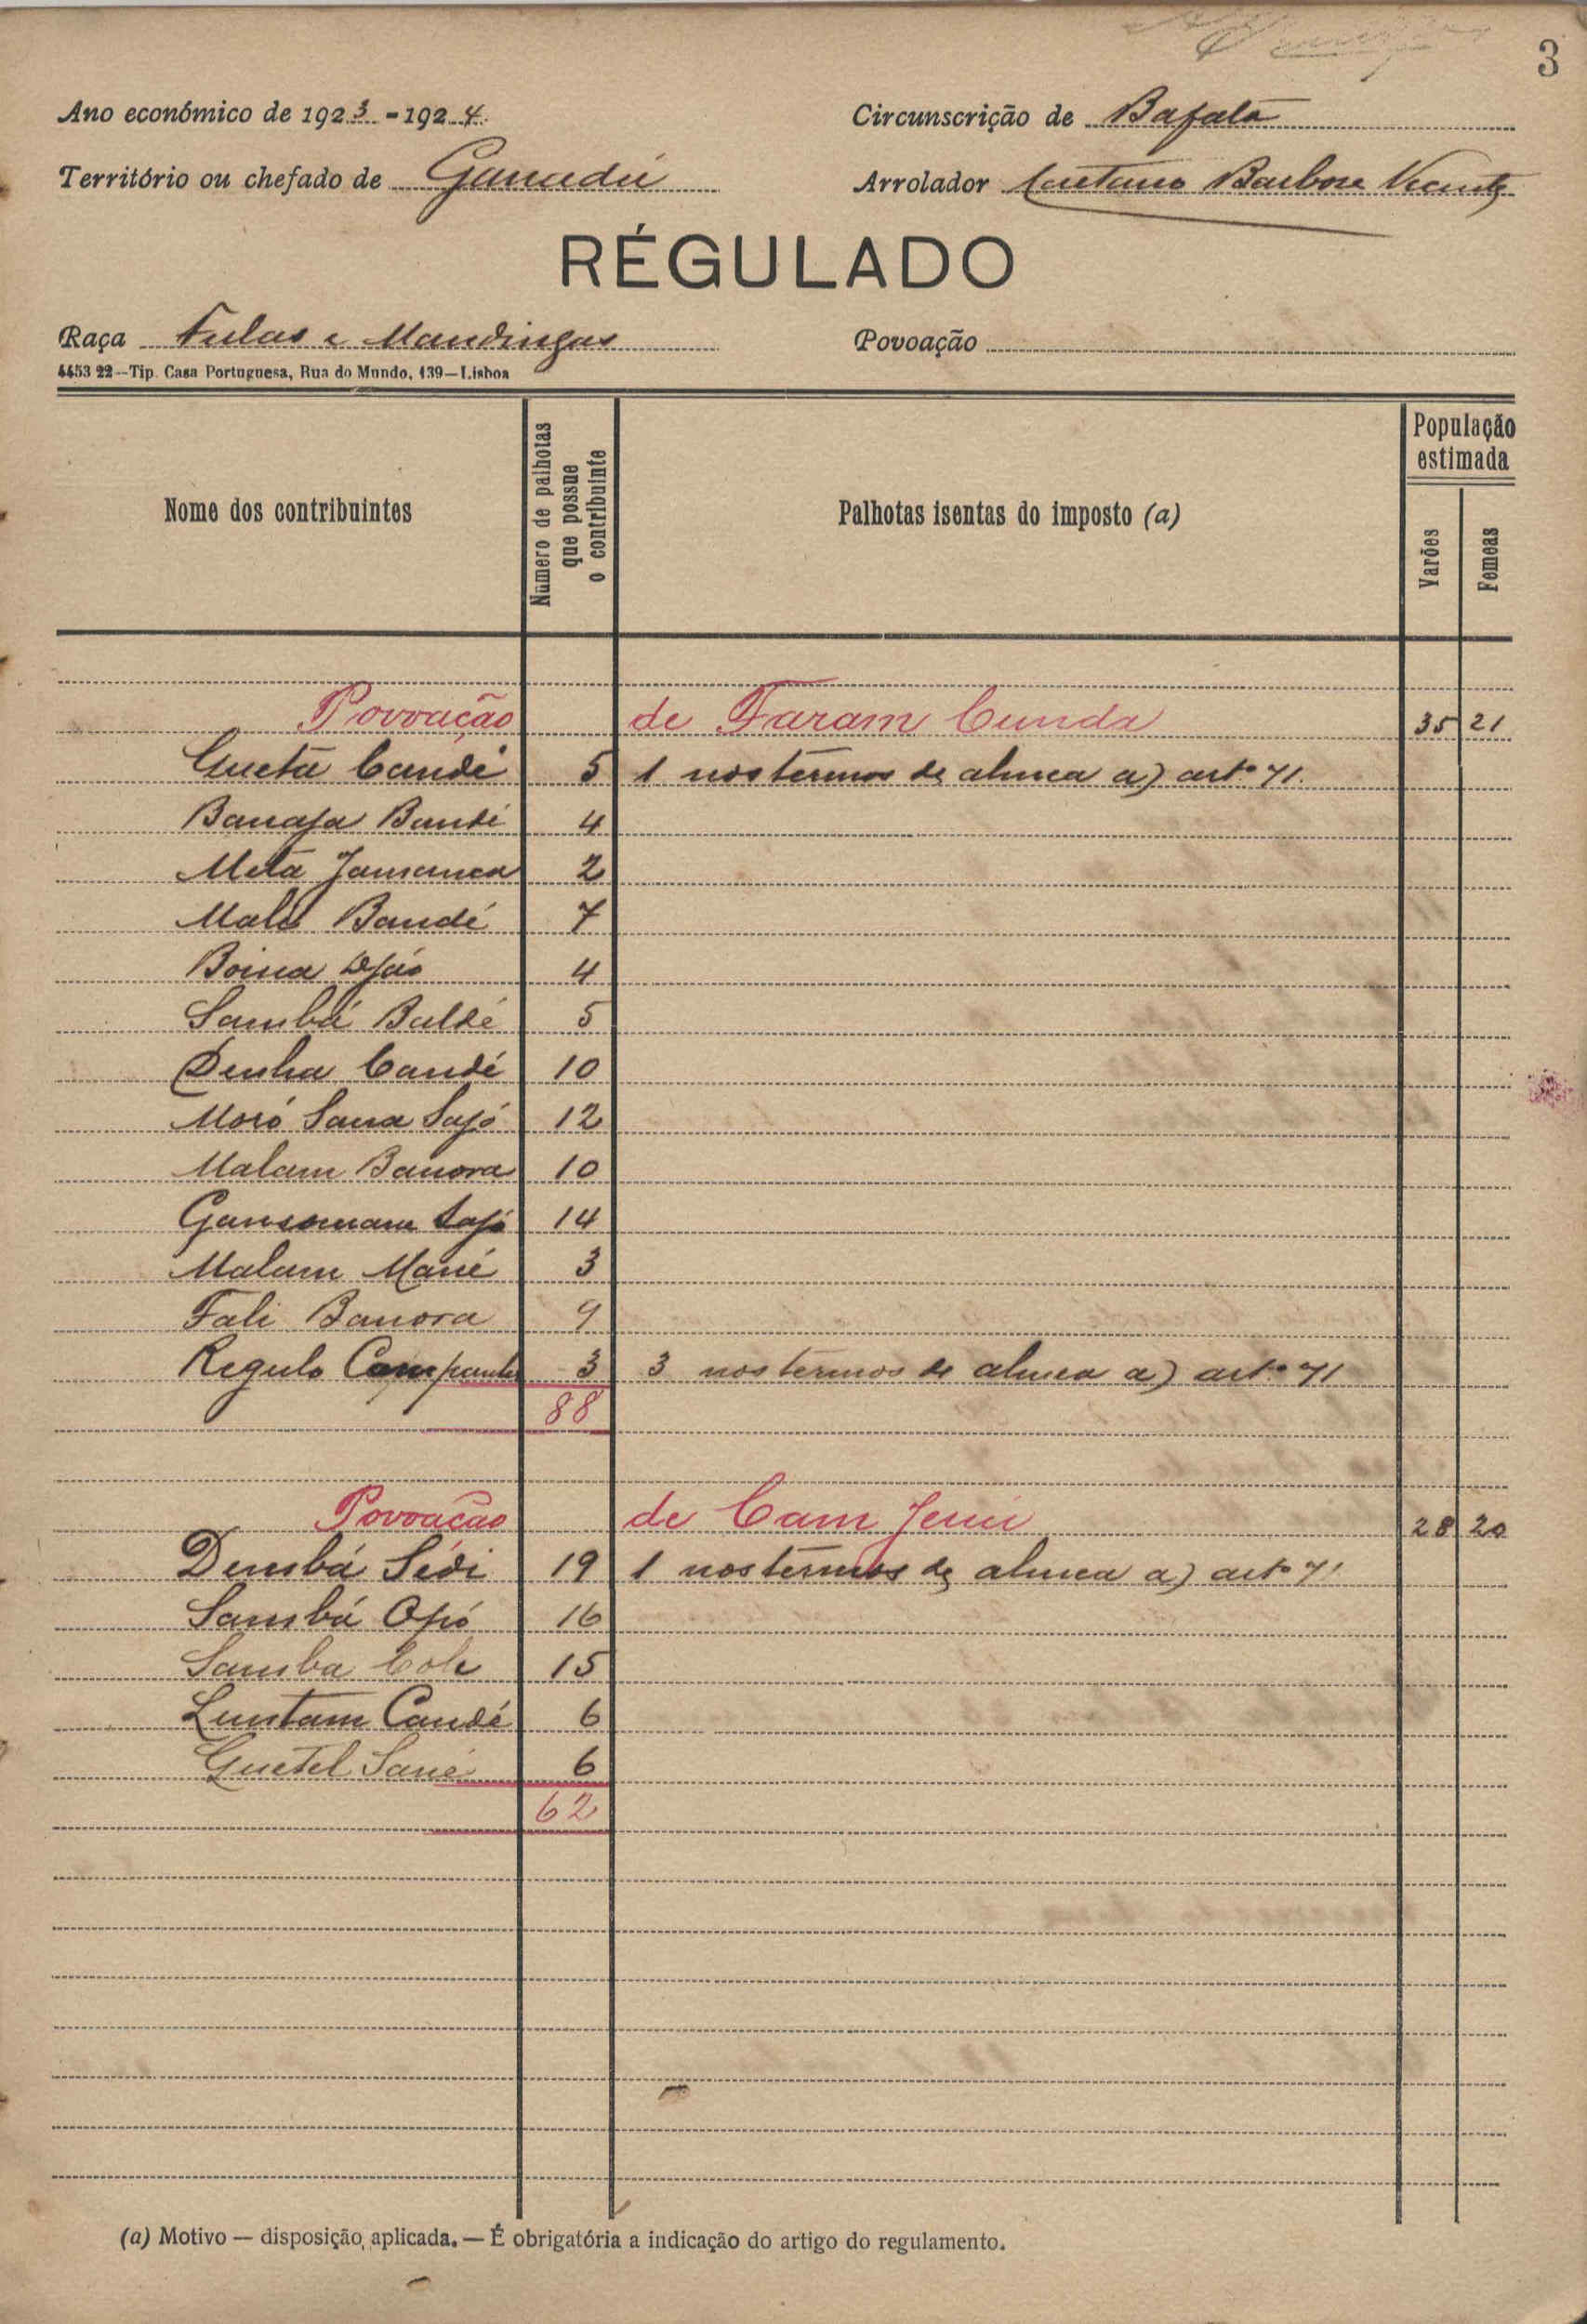 3
Ano económico de 1923-1924
Circunscrição de Bafatá
Território ou chefado de Ganadú
Arrolador Caetano Barbosa Vicente
RÉGULADO
Raça Fulas e Mandingas
Povoação
4453 22--Tip. Casa Portuguesa, Rua do Mundo, 139—Lisboa
Nome dos contribuintes
Número de palhotas que possue o contribuinte
Palhotas isentas do imposto (a)
População estimada
Varões
Femeas
Povoação de Faram Cunda 35 21
Gueta Candé 5 1 nos termos de alinea a) artº 71.
Banafa Bandé 4
Meta Jamanca 2
Malé Bandé 7
Boina 4
Sambá Baldé 5
Denha Candé 10
Moró Sana Sajó 12
Malam Banora 10
Gansomam Sajó 14
Malam Mané 3
Fali Banora 9
Regulo 3 3 nos termos de alinea a) artº 71
88
Povoação de Cam Jeni 28 20
Dembá Sidi 19 1 nos termos de alinea a) artº 71
Sambá Opó 16
Samba Cole 15
Luntam Candé 6
Guetel Sané 6
62
(a) Motivo — disposição aplicada. — É obrigatória a indicação do artigo do regulamento.